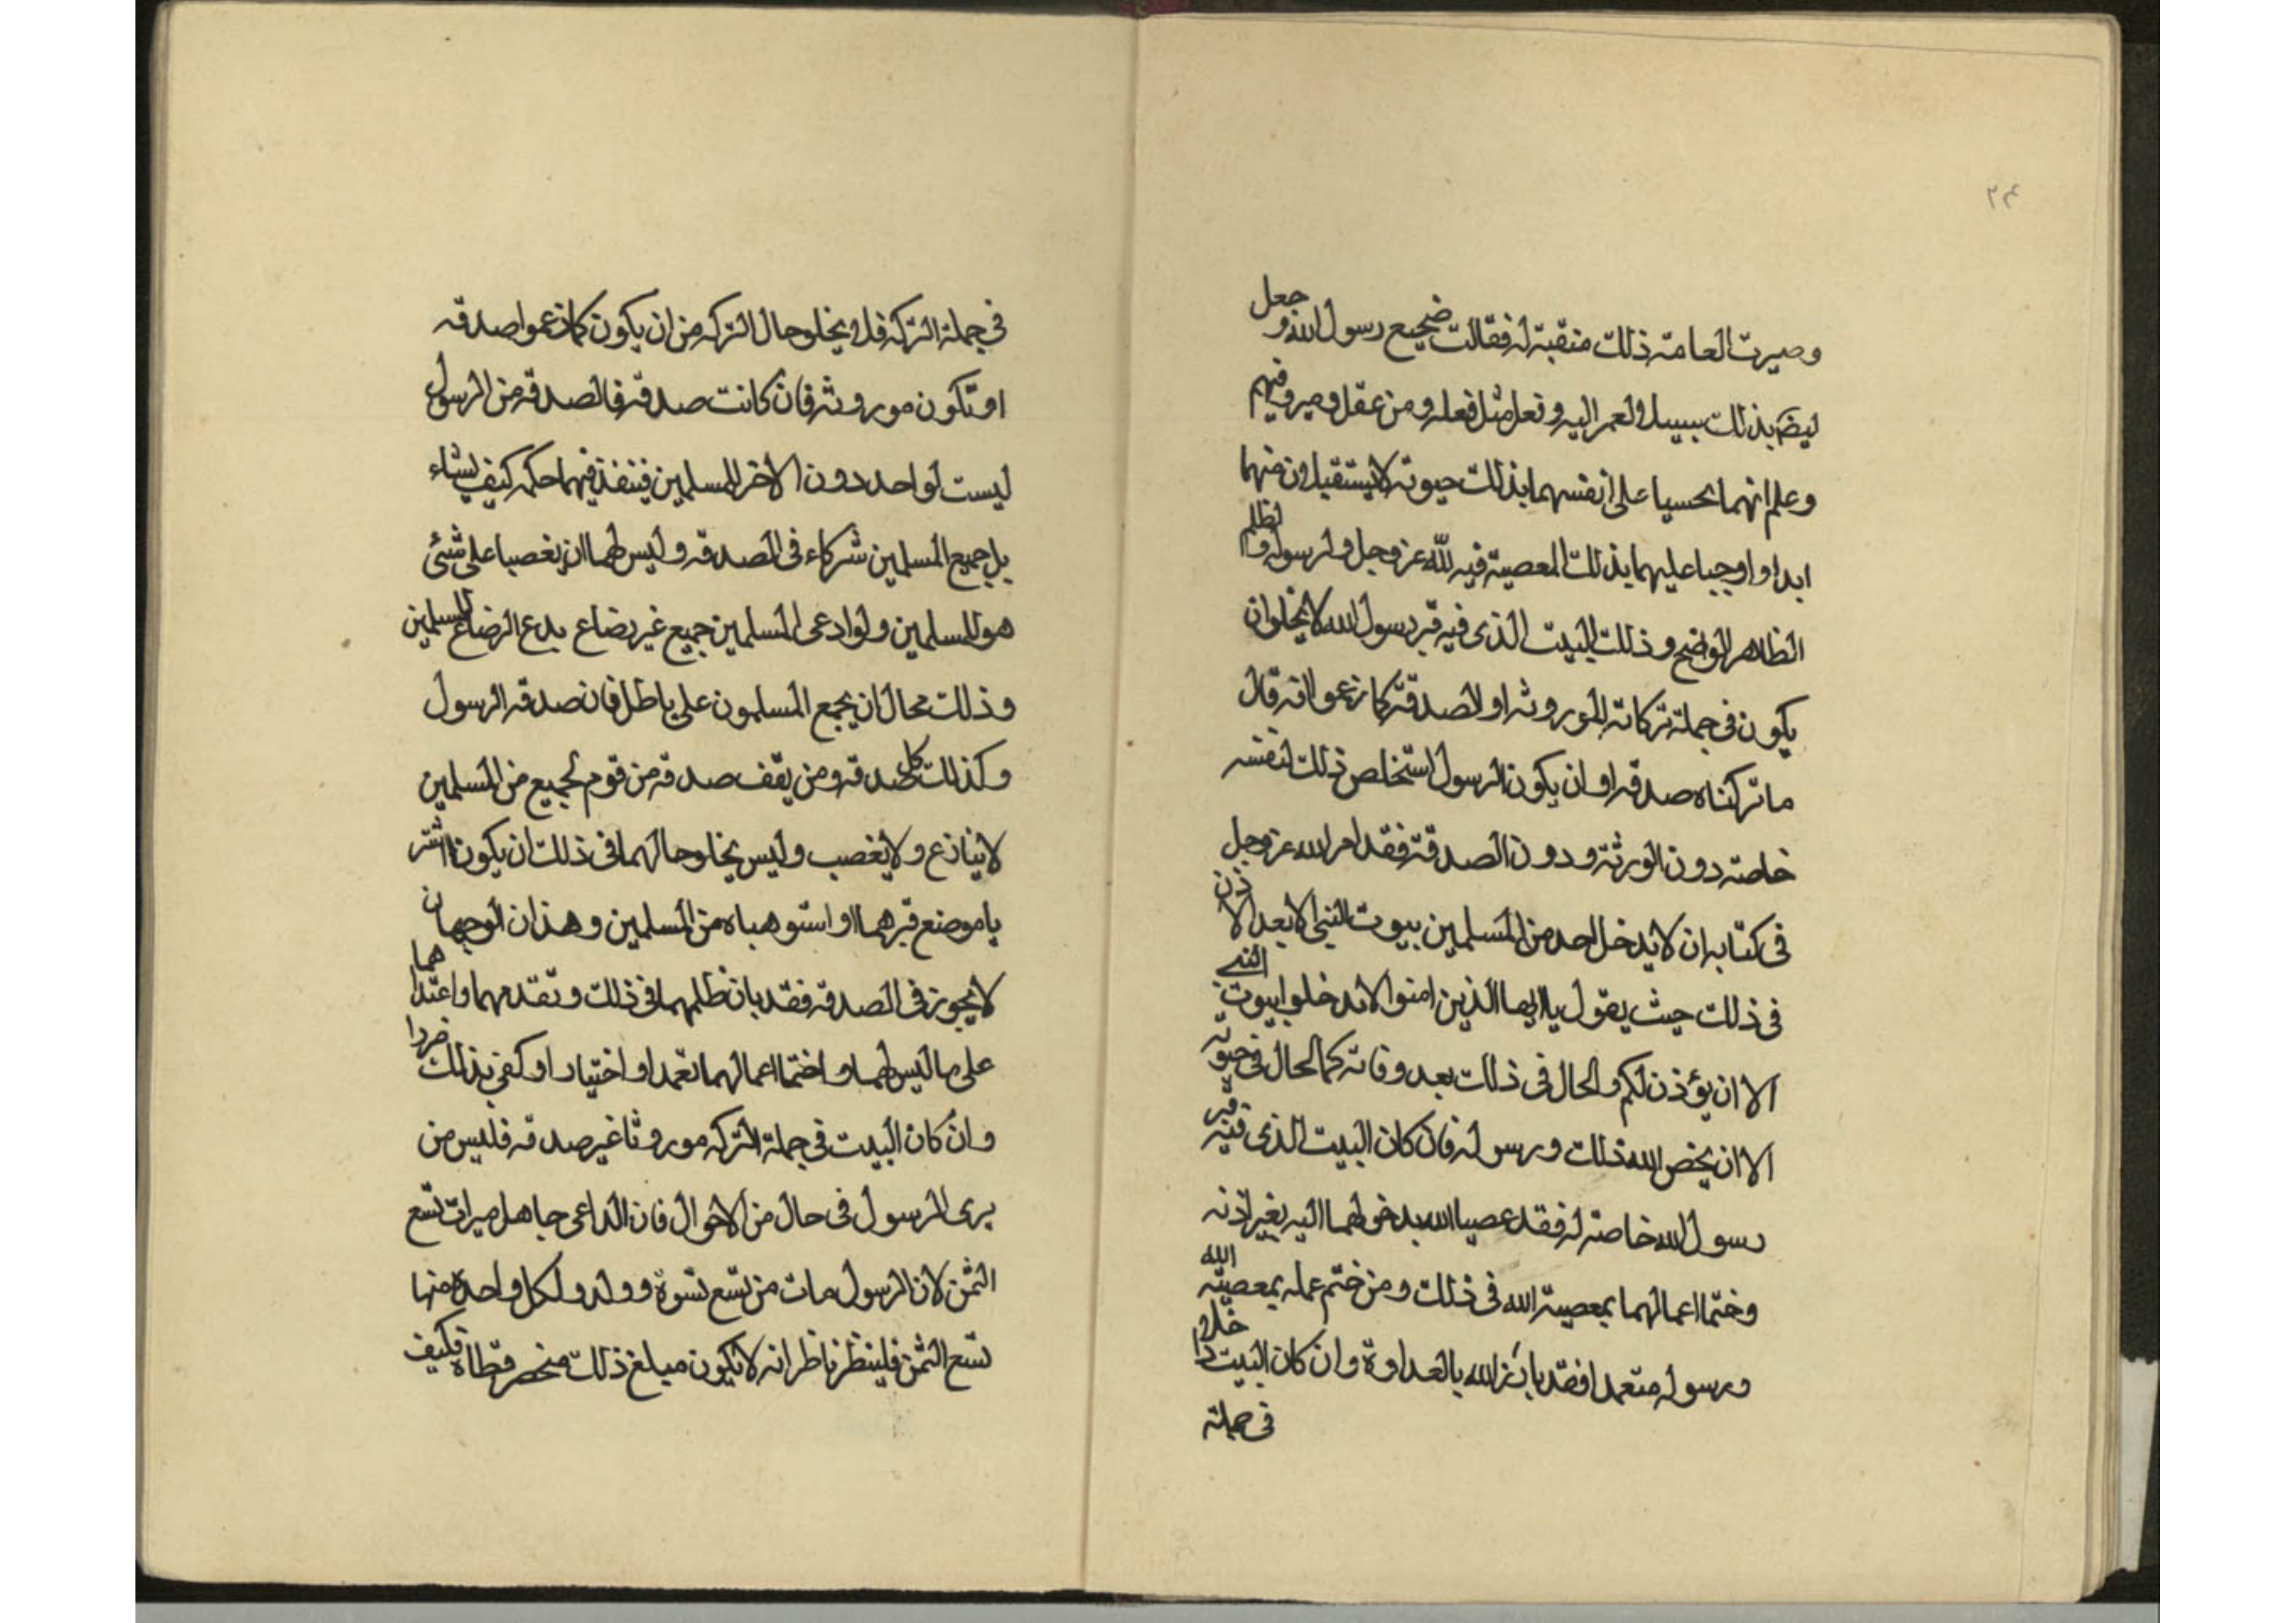 ٢٤
وصيرت العامة ذلك منقبة له فقالت ضجيع رسول الله وجعل
بذلك سبيلا ولعمر اليه وتعل مثل فعله ومن عقل وميز وفهم
وعلم انهما على انفسهما بذلك حيوته لا يستقيلون منهما
ابدا واوجبا عليهما بذلك المعصية فيه لله عز وجل ولرسوله والظلم
الظاهر الواضح وذلك البيت الذى فيه قبر رسول الله لا يخلو ان
يكون فى جملة تركاته الموروثه او لاصدقة كما زعموا انه قال
ما تركناه صدقه او ان يكون الرسول استخلص ذلك لنفسه
خاصة دون الورثة ودون الصدقة فقد امر الله عز وجل
فى كتابه ان لا يدخل احد من المسلمين بيوت النبى الا بعد الاذن
فى ذلك حيث يقول يا ايها الذين امنوا لا تدخلوا بيوت النبى
الا ان يؤذن لكم والحال فى ذلك بعد وفاته كالحال فى حيوته
الا ان يخص الله ذلك ورسوله فان كان البيت الذى فيه قبر
رسول الله خاصة له فقد عصيا الله بدخولهما اليه بغير اذنه
وختما اعمالهما بمعصية الله فى ذلك ومن ختم عمله بمعصية الله
ورسوله متعمدا فقد بارز الله بالعداوة وان كان البيت داخلا
فى جملة
فى جملة التركه فلا يخلو حال التركه من ان يكون كما زعموا صدقه
او تكون موروثه فان كانت صدقه فالصدقه من الرسول
ليست لواحد دون الاخر للمسلمين فينفذ فيهما حكمه كيف يشاء
بل جميع المسلمين شركاء فى الصدقه وليس لهما ان يغصبا على شئ
هو للمسلمين ولو ادعى المسلمين جميع غير بضاع بدع الرضاع للمسلمين
وذلك محال ان يجمع المسلمون على باطل فان صدقه الرسول
وكذلك كل صدقه ومن يقف صدقه من قوم لجميع من المسلمين
لا ينازع ولا يغصب وليس يخلو حالهما فى ذلك ان يكون اشتر
يا موضع قبرهما او استوهباه من المسلمين وهذان الوجهان
لا يجوز فى الصدقه فقد بان ظلمهما فى ذلك وتقدمهما واعتداهما
على ما ليس لهما واختما اعمالهما تعمدا واختيارا وكفى بذلك
وان كان البيت فى جملة التركه موروثا غير صدقه فليس من
يرى الرسول فى حال من الاحوال فان الداعى جاهل ميراث تسع
الثمن لان الرسول مات من تسع نسوة وولد ولكل واحدة منها
تسع الثمن فلينظر ناظر انه لا يكون مبلغ ذلك فكيف